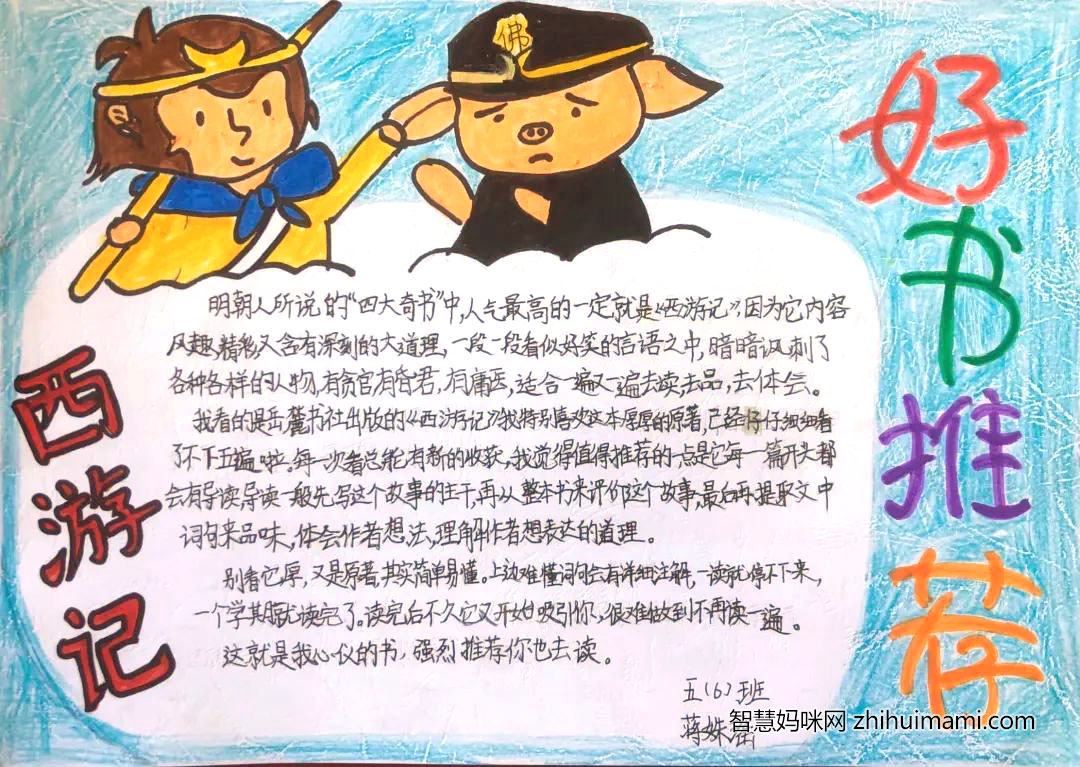 好书推荐
西游记
佛
明朝人所说的“四大奇书”中,人气最高的一定就是《西游记》,因为它内容
风趣,精彩,又含有深刻的大道理,一段一段看似好笑的言语之中,暗暗讽刺了
各种各样的人物,有贪官,有昏君,有庸医,适合一遍又一遍去读,去品,去体会。
我看的是岳麓书社出版的《西游记》,我特别喜欢这本厚厚的原著,已经仔仔细细看
了不下五遍啦。每一次看总能有新的收获,我觉得值得推荐的一点是它每一篇开头都
会有导读,导读一般先写这个故事的主干,再从整本书来评价这个故事,最后再提取文中
词句来品味,体会作者想法,理解作者想表达的道理。
别看它厚,又是原著,其实简单易懂。上边难懂词句会有详细注解,一读就停不下来,
一个学期就读完了。读完后不久它又开始吸引你,很难做到不再读一遍。
这就是我心仪的书,强烈推荐你也去读。
五(6)班
蒋姝
智慧妈咪网 zhihuimami.com